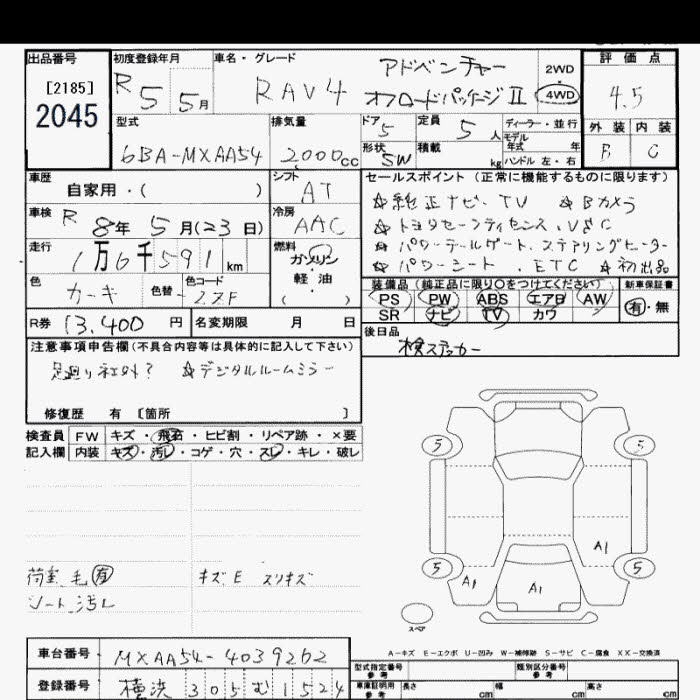 出品番号 [2185] 2045
初度登録年月 R5 5月
車名・グレード RAV4 アドベンチャー オフロードパッケージⅡ
2WD
4WD
評価点 4.5
外装 B 内装 C
型式 6BA-MXAA54
排気量 2000cc
ドア 5 定員 5人
形状 SW 積載 kg
ディーラー・並行
モデル年式 年
ハンドル 左・右
車歴 自家用・( )
シフト AT
車検 R8年5月(23日)
冷房 AAC
走行 1万6千591km
燃料 ガソリン 軽油 ( )
色 カーキ 色替 色コード ZZF
R券 13,400円 名変期限 月 日
セールスポイント(正常に機能するものに限ります)
☆純正ナビ・TV ☆Bカメラ
☆トヨタセーフティセンス、VSC
☆パワーテールゲート、ステアリングヒーター
☆パワーシート、ETC ☆初出品
装備品(純正品に限り○をつけてください) 新車保証書
PS PW ABS エアB AW 有・無
SR ナビ TV カワ
後日品
検ステッカー
注意事項申告欄(不具合内容等は具体的に記入して下さい)
足廻り社外? ☆デジタルルームミラー
修復歴 有 [箇所 ]
検査員 FW キズ・飛石・ヒビ割・リペア跡・×要
記入欄 内装 キズ・汚レ・コゲ・穴・スレ・キレ・破レ
荷室毛有 キズE スリキズ
シート汚レ
5 5
A1
5 5
A1 A1
スペア
A-キズ E-エクボ U-凹み W-補修跡 S-サビ C-腐食 XX-交換済
車台番号 MXAA54-4039262
登録番号 横浜 305 む 1524
型式指定番号 参考 類別区分番号 参考
車庫証明用 参考 長さ cm 幅 cm 高さ cm